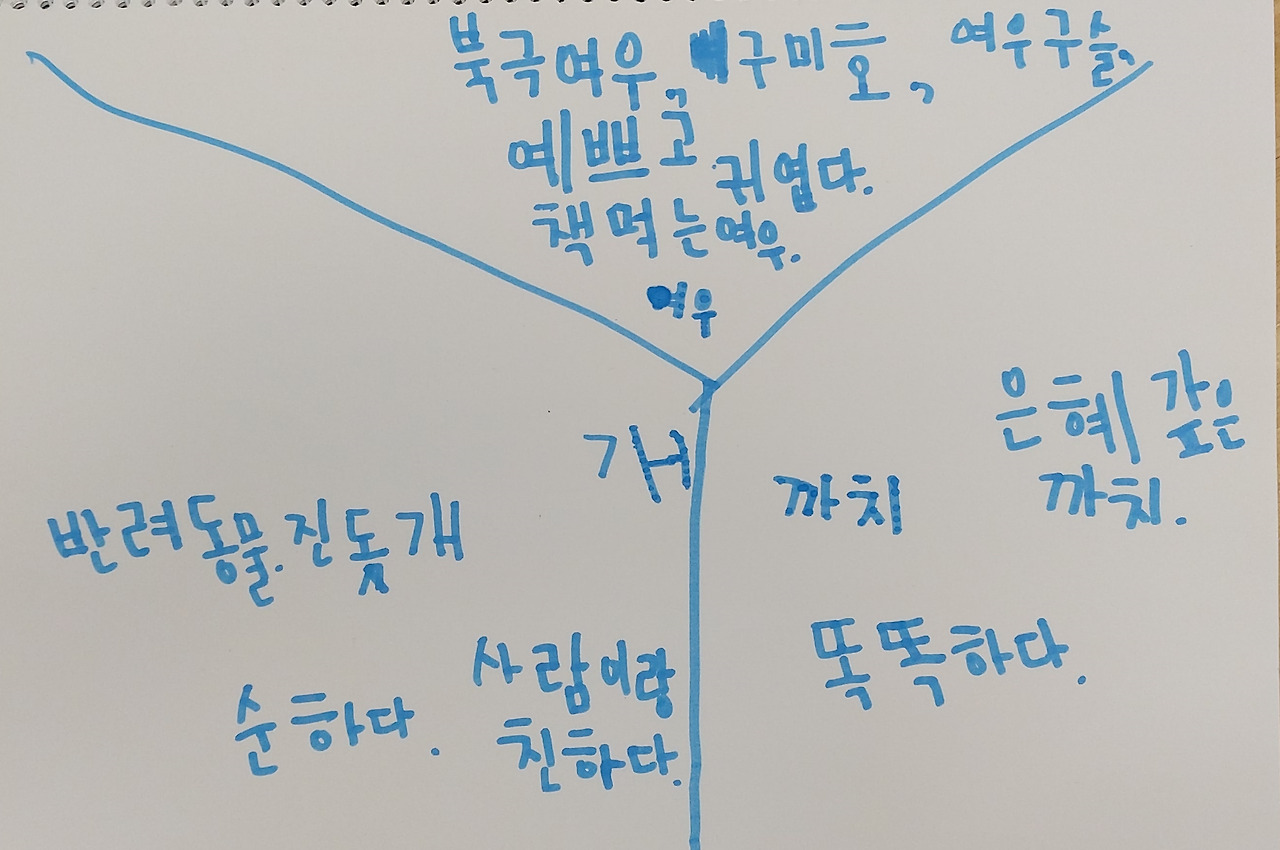 북극여우, 구미호, 여우구슬,
예쁘고 귀엽다.
책 먹는여우.
여우
개
반려동물. 진돗개
순하다.
사람이랑
친하다.
까치
은혜 갚은
까치.
똑똑하다.